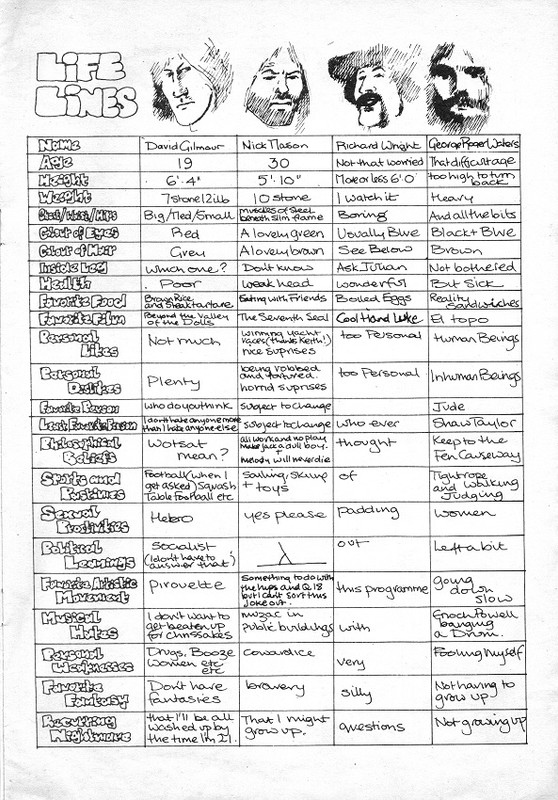 LIFE
LINES
Name David Gilmour Nick Mason Richard Wright George Roger Waters
Age 19 30 Not that worried That difficult age
Height 6'.4" 5'.10" More or less 6'0" too high to turn back
Weight 7 stone 12 lb 10 stone I watch it Heavy
Chest/Waist/Hips Big/Med/Small Muscles of steel beneath slim frame Boring And all the bits
Colour of Eyes Red A lovely green Usually Blue Black + Blue
Colour of Hair Grey A lovely brown See Below Brown
Inside Leg Which one? Don't know Ask Julian Not bothered
Health Poor Weak head wonderful But Sick
Favorite Food Brown Rice and Steak tartare Eating with Friends Boiled Eggs Reality Sandwiches
Favorite Film Beyond the Valley of the Dolls The Seventh Seal Cool Hand Luke El topo
Personal Likes Not much Winning yacht races (thanks Keith!) nice suprises too Personal Human Beings
Personal Dislikes Plenty being robbed and tortured. horrid suprises too Personal Inhuman Beings
Favorite Person who do you think Subject to change Jude
Least Favorite Person I don't hate anyone more than I hate anyone else Subject to change who ever Shaw Taylor
Philosophical Beliefs Wotsat mean? all work and no play make jack a dull boy. + melody will never die thought Keep to the Fen Causeway
Sports and Pastimes Football (when I get asked) Squash Table Football etc Sailing, Skiing + toys of Tightrope and walking Judging
Sexual Proclivities Hetero yes please padding Women
Political Leanings Socialist (I don't have to answer that) out Left a bit
Favorite Artistic Movement Pirouette Something to do with the hips and Q.18 but I can't sort this joke out. this programme going down slow
Musical Hates I don't want to get beaten up for chrissakes muzac in Public buildings with Enoch Powell banging a Drum.
Personal Weaknesses Drugs, Booze Women etc etc Cowardice very Fooling Myself
Favorite Fantasy Don't have fantasies bravery silly Not having to grow up.
Recurring Nightmare that I'll be all washed up by the time I'm 21. That I might grow up. questions Not growing up